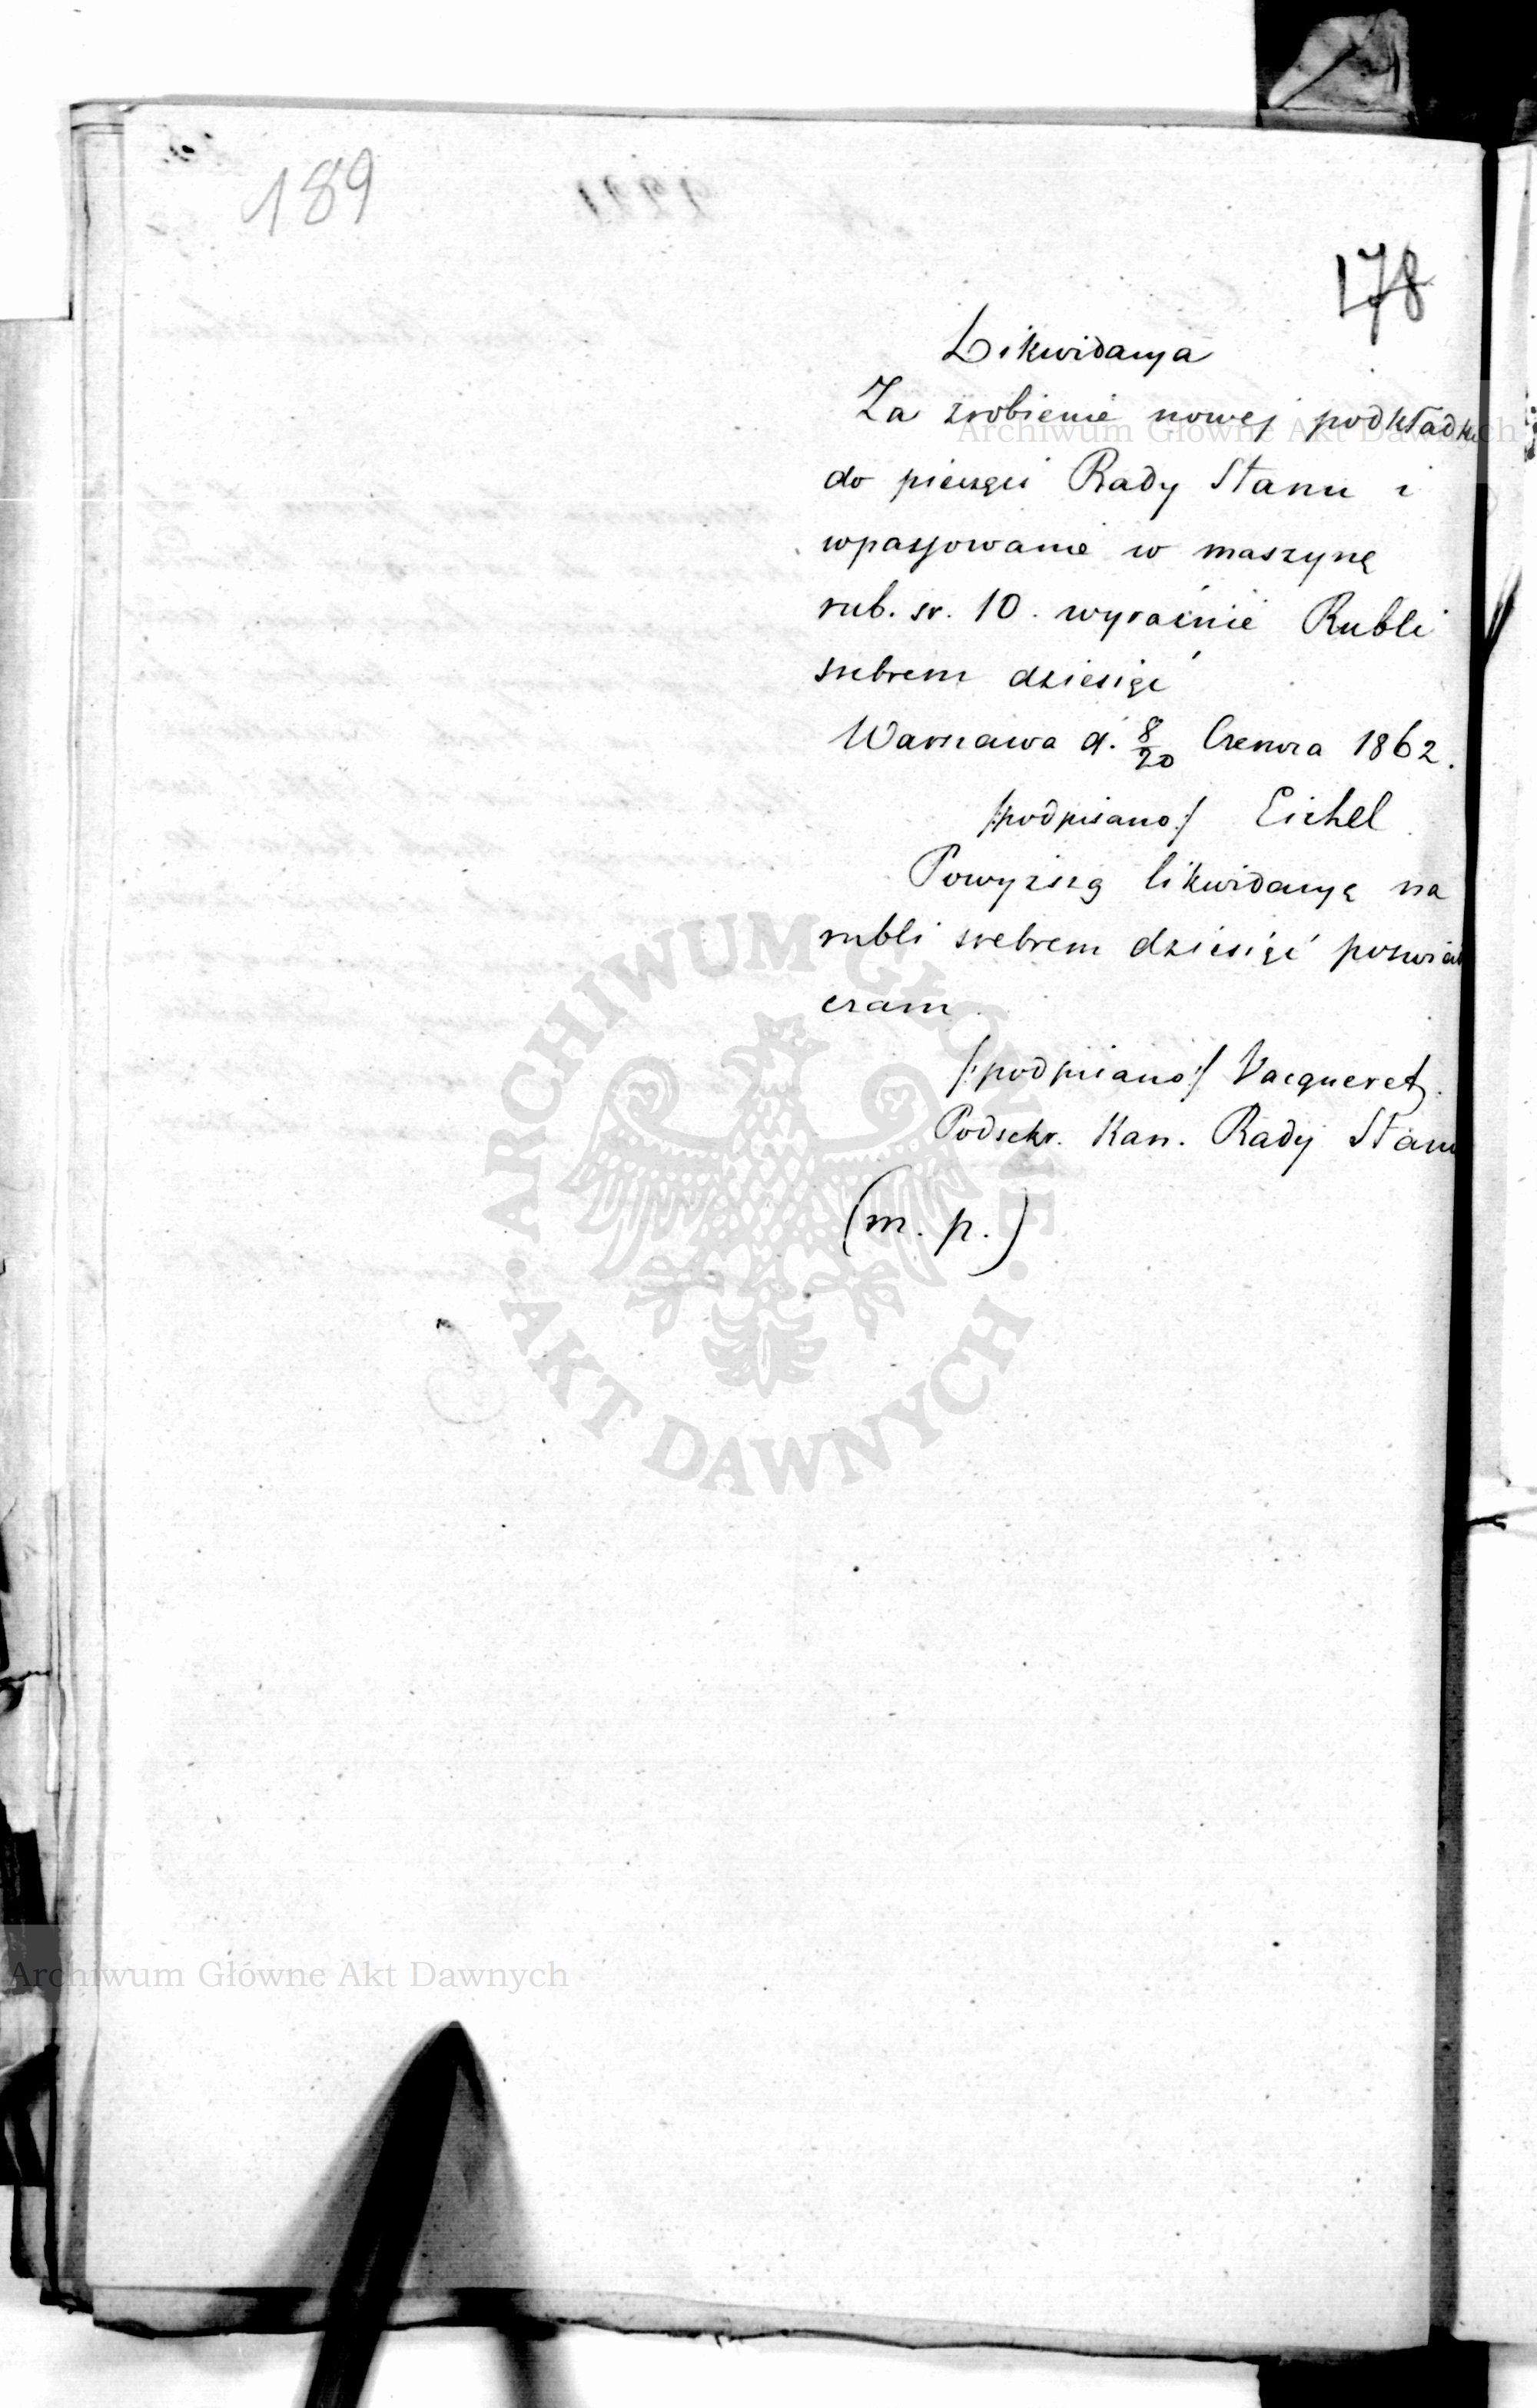 189
178
Likwidacya
Za zrobienie nowej podkładki
do pieczęci Rady Stanu i
wpassowanie w maszynę
rub. sr. 10. wyraźnie Rubli
srebrem dziesięć
Warszawa d. 8/20 Czerwca 1862.
/:podpisano:/ Eichel
Powyższą likwidacyę na
rubli srebrem dziesięć poświad
czam
/:podpisano:/ Vacqueret.
Podsekr. Kan. Rady Stanu
(m. p.)
ARCHIWUM GŁÓWNE AKT DAWNYCH
Archiwum Główne Akt Dawnych
Archiwum Główne Akt Dawnych